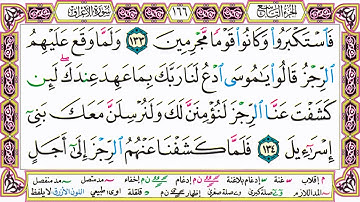 الجزء التاسع ١٦٦ سورة الأعراف
فَاسْتَكْبَرُوا وَكَانُوا قَوْمًا مُّجْرِمِينَ ١٣٣ وَلَمَّا وَقَعَ عَلَيْهِمُ
الرِّجْزُ قَالُوا يَا مُوسَى ادْعُ لَنَا رَبَّكَ بِمَا عَهِدَ عِندَكَ لَئِن
كَشَفْتَ عَنَّا الرِّجْزَ لَنُؤْمِنَنَّ لَكَ وَلَنُرْسِلَنَّ مَعَكَ بَنِي
إِسْرَائِيلَ ١٣٤ فَلَمَّا كَشَفْنَا عَنْهُمُ الرِّجْزَ إِلَى أَجَلٍ